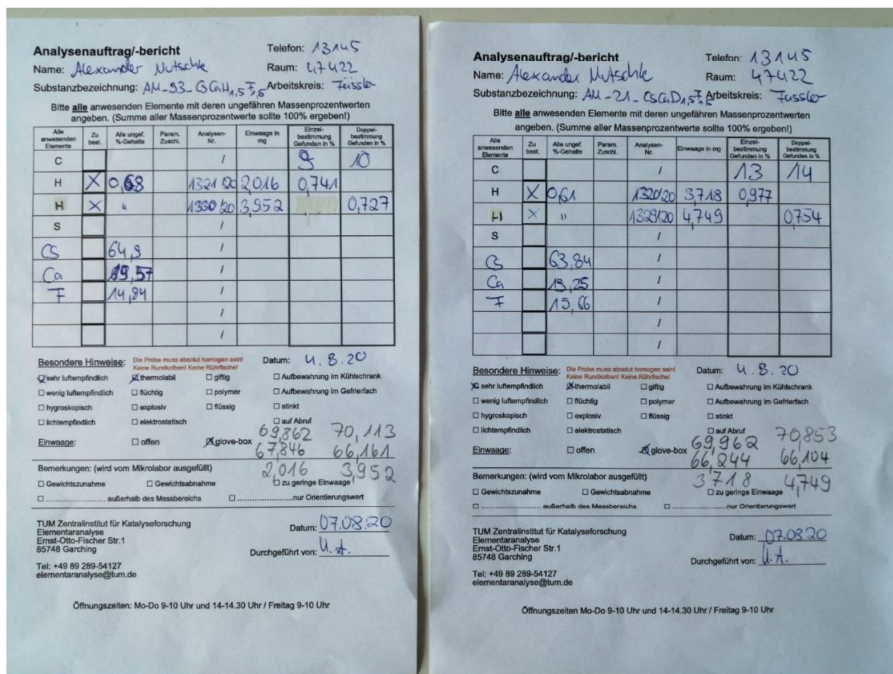 Analysenauftrag/-bericht
Telefon: 13145
Name: Alexander Nutschke
Raum: 47422
Substanzbezeichnung: AM-93_CsCaH1,5F1,5 Arbeitskreis: Fässler
Bitte alle anwesenden Elemente mit deren ungefähren Massenprozentwerten
angeben. (Summe aller Massenprozentwerte sollte 100% ergeben!)
Alle anwesenden Elemente Zu best. Alle ungef. %-Gehalte Param. Zuschl. Analysen-Nr. Einwaage in mg Einzel-bestimmung Gefunden in % Doppel-bestimmung Gefunden in %
C / 9 10
H X 0,68 1321/20 2,016 0,741
H X " 1330/20 3,952 0,727
S /
Cs 64,9 /
Ca 19,57 /
F 14,84 /
/
/
Besondere Hinweise: Die Probe muss absolut homogen sein! Keine Rundkolben! Keine Rührfische! Datum: 4.8.20
sehr luftempfindlich thermolabil giftig Aufbewahrung im Kühlschrank
wenig luftempfindlich flüchtig polymer Aufbewahrung im Gefrierfach
hygroskopisch explosiv flüssig stinkt
lichtempfindlich elektrostatisch auf Abruf
69,862 70,113
Einwaage: offen glove-box 67,846 66,161
2,016 3,952
Bemerkungen: (wird vom Mikrolabor ausgefüllt)
Gewichtszunahme Gewichtsabnahme zu geringe Einwaage
........................ außerhalb des Messbereichs ........................nur Orientierungswert
TUM Zentralinstitut für Katalyseforschung
Elementaranalyse
Ernst-Otto-Fischer Str.1
85748 Garching
Datum: 07.08.20
Durchgeführt von: U.A.
Tel: +49 89 289-54127
elementaranalyse@tum.de
Öffnungszeiten: Mo-Do 9-10 Uhr und 14-14.30 Uhr / Freitag 9-10 Uhr
Analysenauftrag/-bericht
Telefon: 13145
Name: Alexander Nutschke
Raum: 47422
Substanzbezeichnung: AM-21_CsCaD1,5F1,5 Arbeitskreis: Fässler
Bitte alle anwesenden Elemente mit deren ungefähren Massenprozentwerten
angeben. (Summe aller Massenprozentwerte sollte 100% ergeben!)
Alle anwesenden Elemente Zu best. Alle ungef. %-Gehalte Param. Zuschl. Analysen-Nr. Einwaage in mg Einzel-bestimmung Gefunden in % Doppel-bestimmung Gefunden in %
C / 13 14
H X 0,61 1320/20 3,718 0,977
H X " 1329/20 4,749 0,754
S /
Cs 63,84 /
Ca 19,25 /
F 15,66 /
/
/
Besondere Hinweise: Die Probe muss absolut homogen sein! Keine Rundkolben! Keine Rührfische! Datum: 4.8.20
sehr luftempfindlich thermolabil giftig Aufbewahrung im Kühlschrank
wenig luftempfindlich flüchtig polymer Aufbewahrung im Gefrierfach
hygroskopisch explosiv flüssig stinkt
lichtempfindlich elektrostatisch auf Abruf
69,962 70,853
Einwaage: offen glove-box 66,244 66,104
3,718 4,749
Bemerkungen: (wird vom Mikrolabor ausgefüllt)
Gewichtszunahme Gewichtsabnahme zu geringe Einwaage
........................ außerhalb des Messbereichs ........................nur Orientierungswert
TUM Zentralinstitut für Katalyseforschung
Elementaranalyse
Ernst-Otto-Fischer Str.1
85748 Garching
Datum: 07.08.20
Durchgeführt von: U.A.
Tel: +49 89 289-54127
elementaranalyse@tum.de
Öffnungszeiten: Mo-Do 9-10 Uhr und 14-14.30 Uhr / Freitag 9-10 Uhr